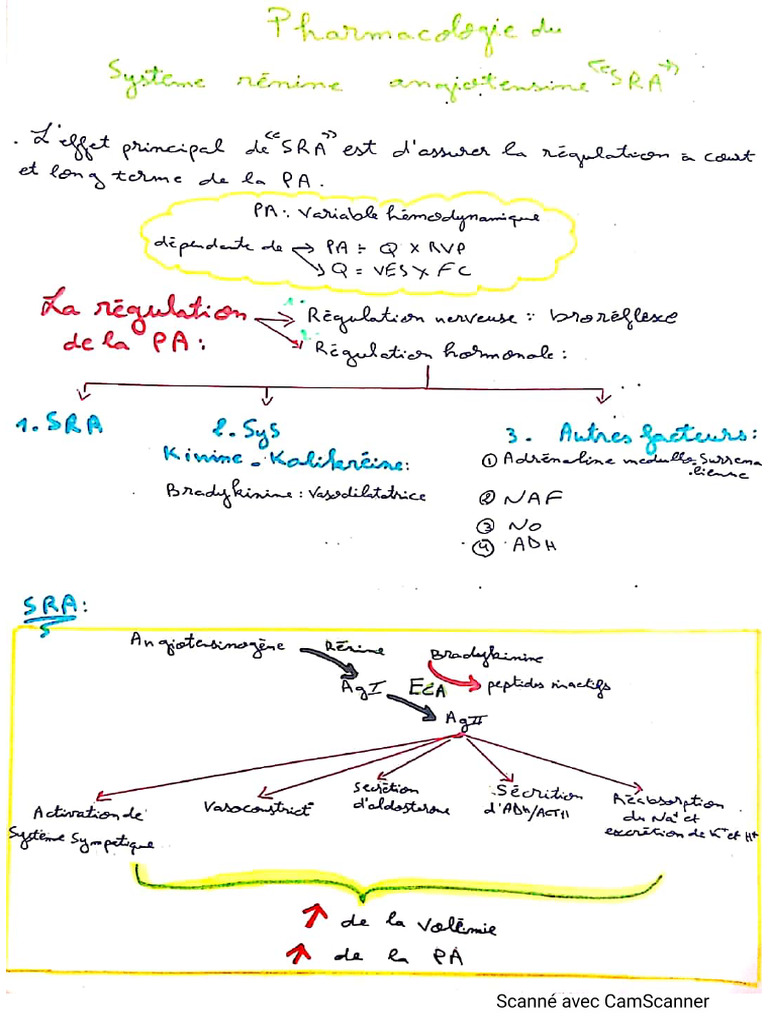 Pharmacologie du
Système rénine angiotensine "SRA"
. L'effet principal de "SRA" est d'assurer la régulation à court
et long terme de la PA.
PA: Variable hémodynamique
dépendante de → PA = Q x RVP
↘ Q = VES x FC
La régulation
de la PA:
1. Régulation nerveuse : baroréflexe
2. Régulation hormonale :
1. SRA
2. Sys
Kinine - Kalikréine:
Bradykinine : vasodilatatrice
3. Autres facteurs:
① Adrénaline medullo-surréna
lienne
② NAF
③ NO
④ ADH
SRA:
Angiotensinogène Rénine Bradykinine
AgI ECA peptides inactifs
AgII
Activation de
Système Sympatique
Vasoconstrict°
Secrétion
d'aldostérone
Sécrétion
d'ADH/ACTH
Réabsorption
du Na⁺ et
excrétion de K⁺ et H⁺
↑ de la volémie
↑ de la PA
Scanné avec CamScanner